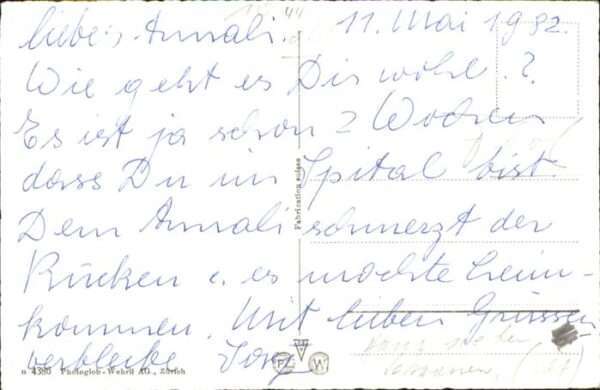 liebes Annali. 11. Mai 1982.
Wie geht es Dir wohl.?
Es ist ja schon 2 Wochen
dass Du im Spital bist.
Dem Annali schmerzt der
Rücken u. es möchte heim-
kommen. Mit lieben Grüssen
verbleibe
Fabrication suisse
n 4380 Photoglob-Wehrli AG., Zürich
P W